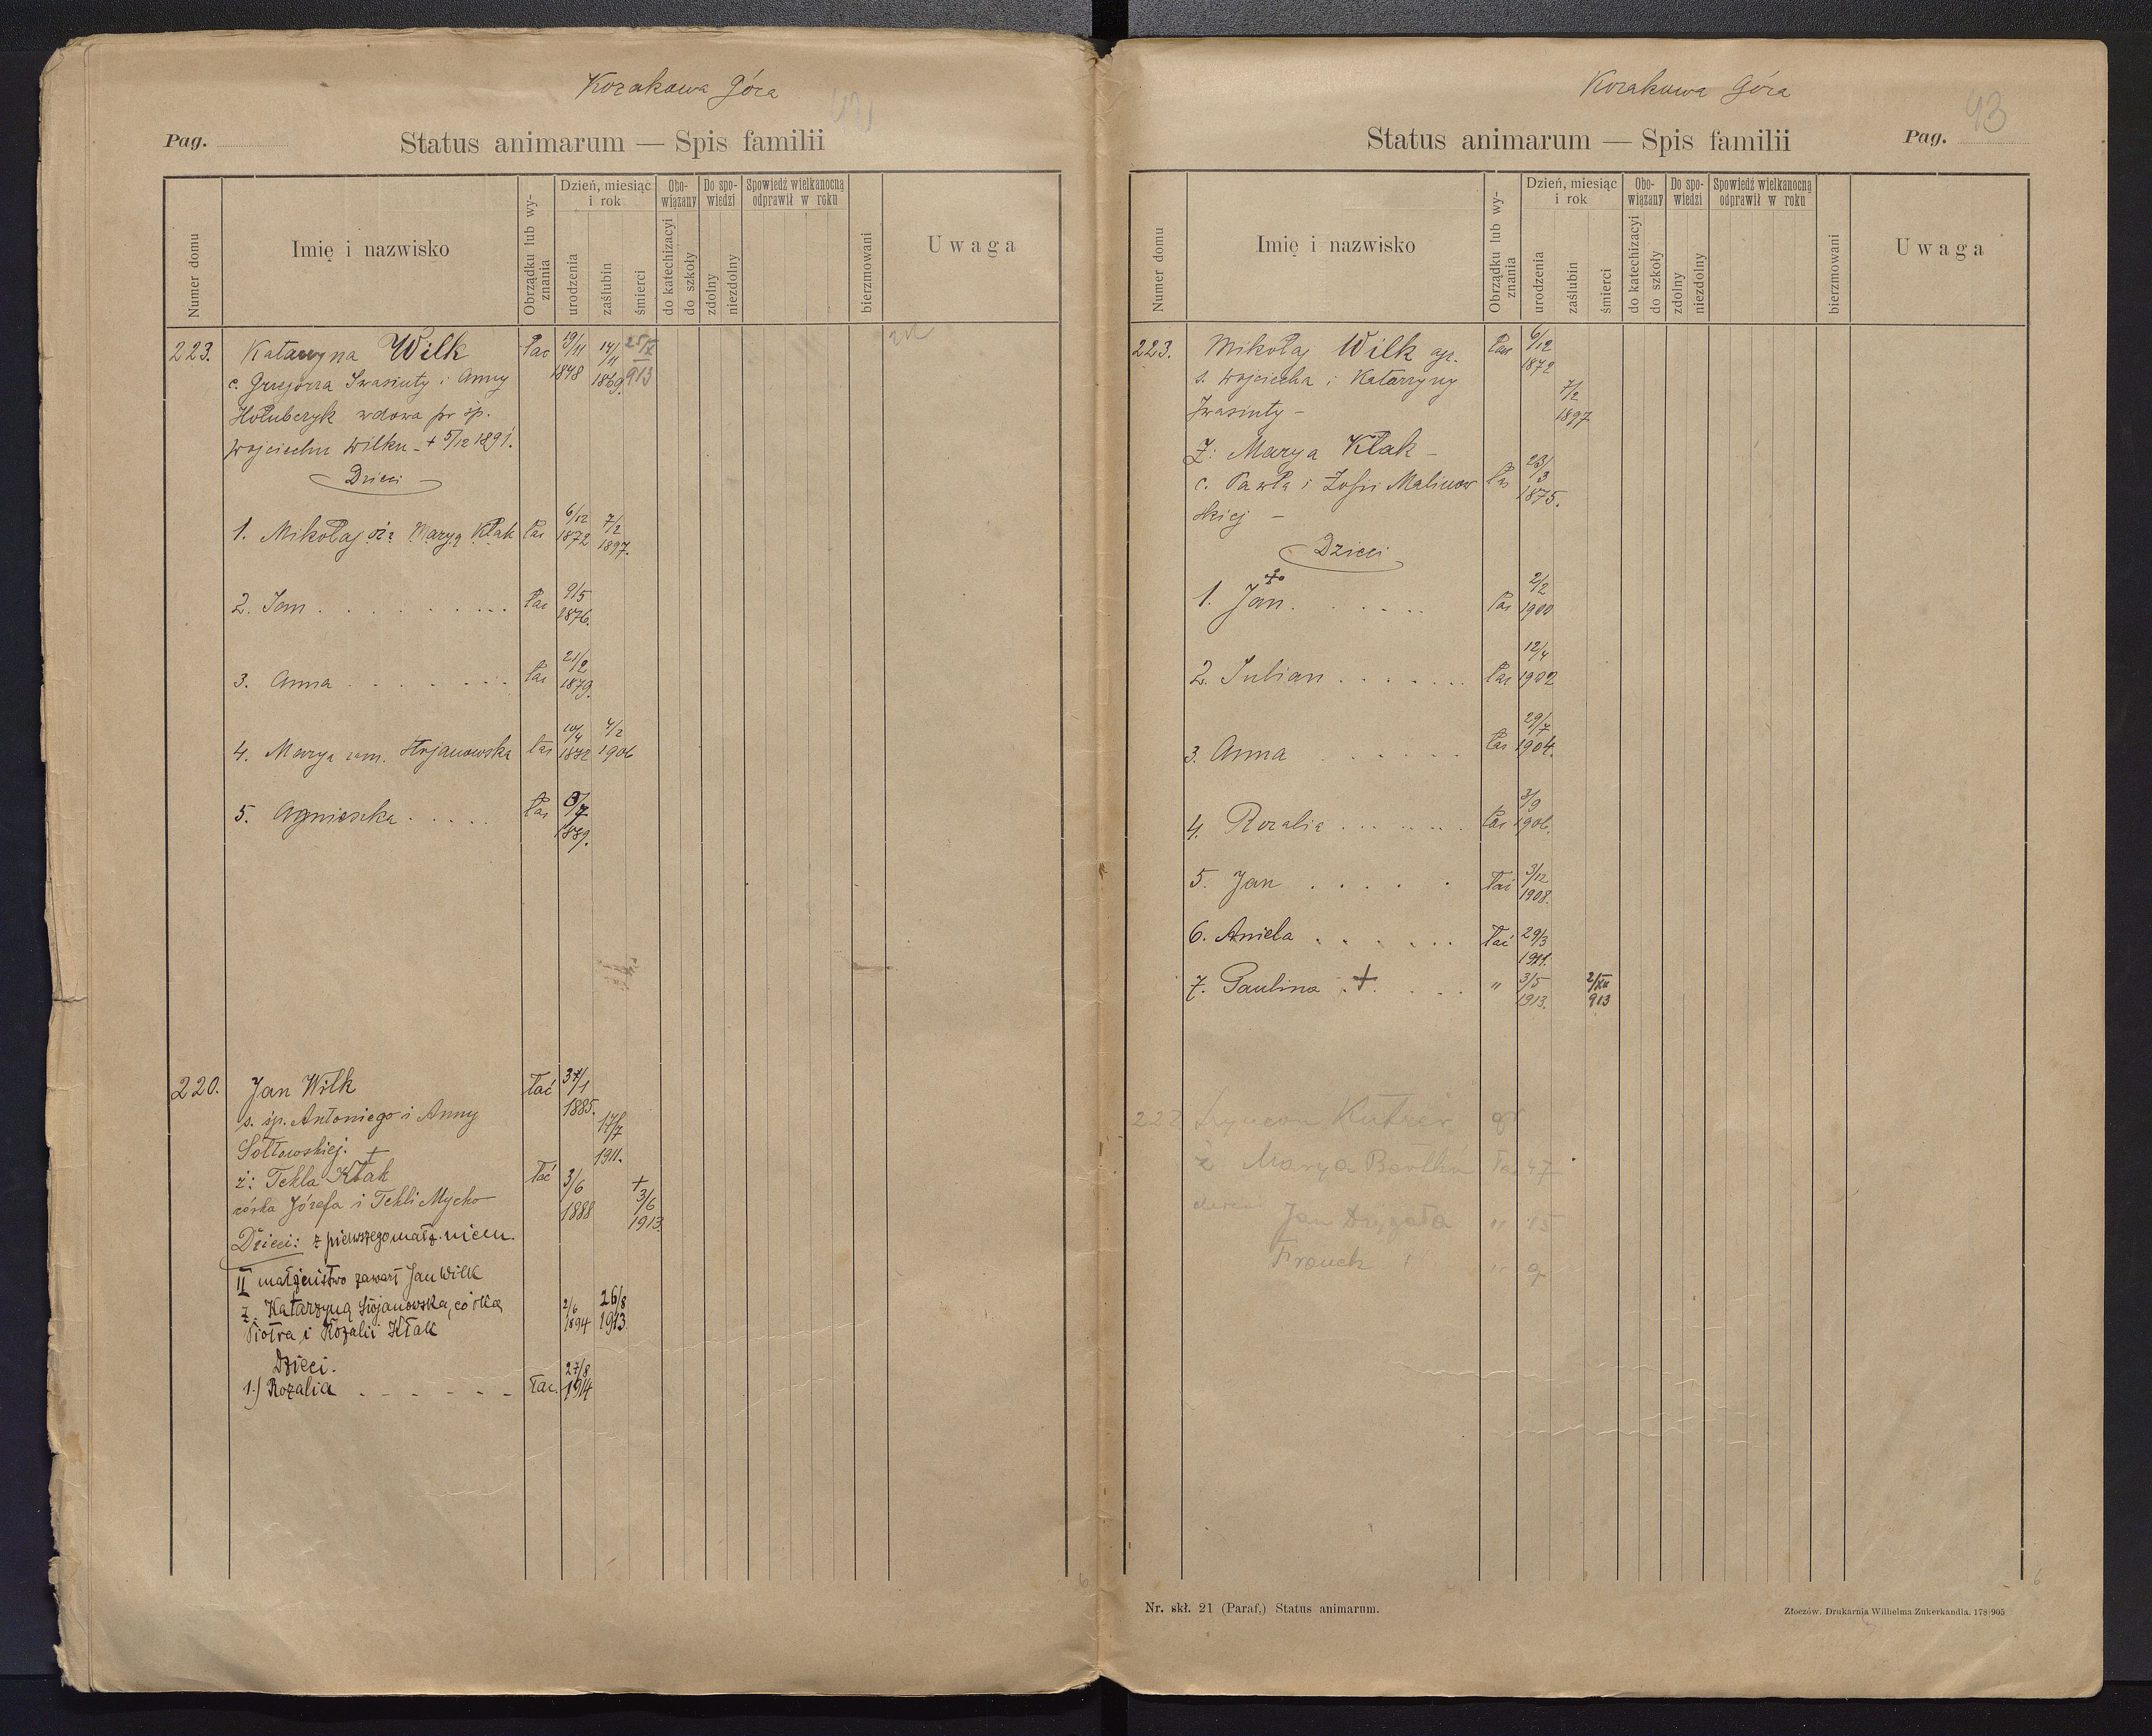 Kozakowa Góra
Pag.
Status animarum — Spis familii
Numer domu
Imię i nazwisko
Obrządku lub wyznania
Dzień, miesiąc i rok
urodzenia
zaślubin
śmierci
Obowiązany
do katechizacyi
do szkoły
Do spowiedzi
zdolny
niezdolny
Spowiedź wielkanocną odprawił w roku
bierzmowani
Uwaga
223. Katarzyna Wilk łac 19/11 1848 14/11 1869. 25/IX 913
c. Grzegorza Iwasiuty i Anny
Hołubczyk wdowa po śp.
Wojciechu Wilku - + 5/12 1891.
Dzieci
1. Mikołaj oż: Maryą Kłak łac 6/12 1872 7/2 1897.
2. Jan . . . . . . . . łac 9/5 1876.
3. Anna . . . . . . . łac 21/2 1879.
4. Marya zam. łac 1906
5. Agnieszka . . . . . łac 8/7 1889.
220. Jan Wilk łać 1885.
s. śp. Antoniego i Anny 17/7
Sołtowskiej. 1911.
ż: Tekla Kłak + łać 3/6 1888 + 3/6 1913.
córka Józefa i Tekli Mycko
Dzieci: z pierwszego małż. niem.
II małżeństwo zawarł Jan Wilk
z Katarzyną Stojanowską, córką 2/6 1894 26/8 1913.
Piotra i Rozalii Kłak
Dzieci.
1.) Rozalia . - - - - - - łac. 27/8 1914
Kozakowa Góra
43
Status animarum — Spis familii
Pag.
Numer domu
Imię i nazwisko
Obrządku lub wyznania
Dzień, miesiąc i rok
urodzenia
zaślubin
śmierci
Obowiązany
do katechizacyi
do szkoły
Do spowiedzi
zdolny
niezdolny
Spowiedź wielkanocną odprawił w roku
bierzmowani
Uwaga
223. Mikołaj Wilk łac 6/12 1872
s. Wojciecha i Katarzyny 7/2
Iwasiuty - 1897
Ż: Marya Kłak -
c. Pawła i Zofii Malinow łac 23/3 1875.
skiej -
Dzieci
1. Jan . . . . . . łac 2/2 1900
2. Julian . . . . . . . łac 12/4 1902
3. Anna . . . . . . łac 29/7 1904.
4. Rozalia . . . . . . . łac 3/9 1906.
5. Jan . . . . . łać 3/12 1908.
6. Aniela . . . . . . łać 29/3 1911.
7. Paulina . + . . . . " 3/5 1913. 2/XII 913
ż Marya łac 47
Jan Drygała " 15
Franek " 9
Nr. skł. 21 (Paraf.) Status animarum.
Złoczów. Drukarnia Wilhelma Zukerkandla. 178|905